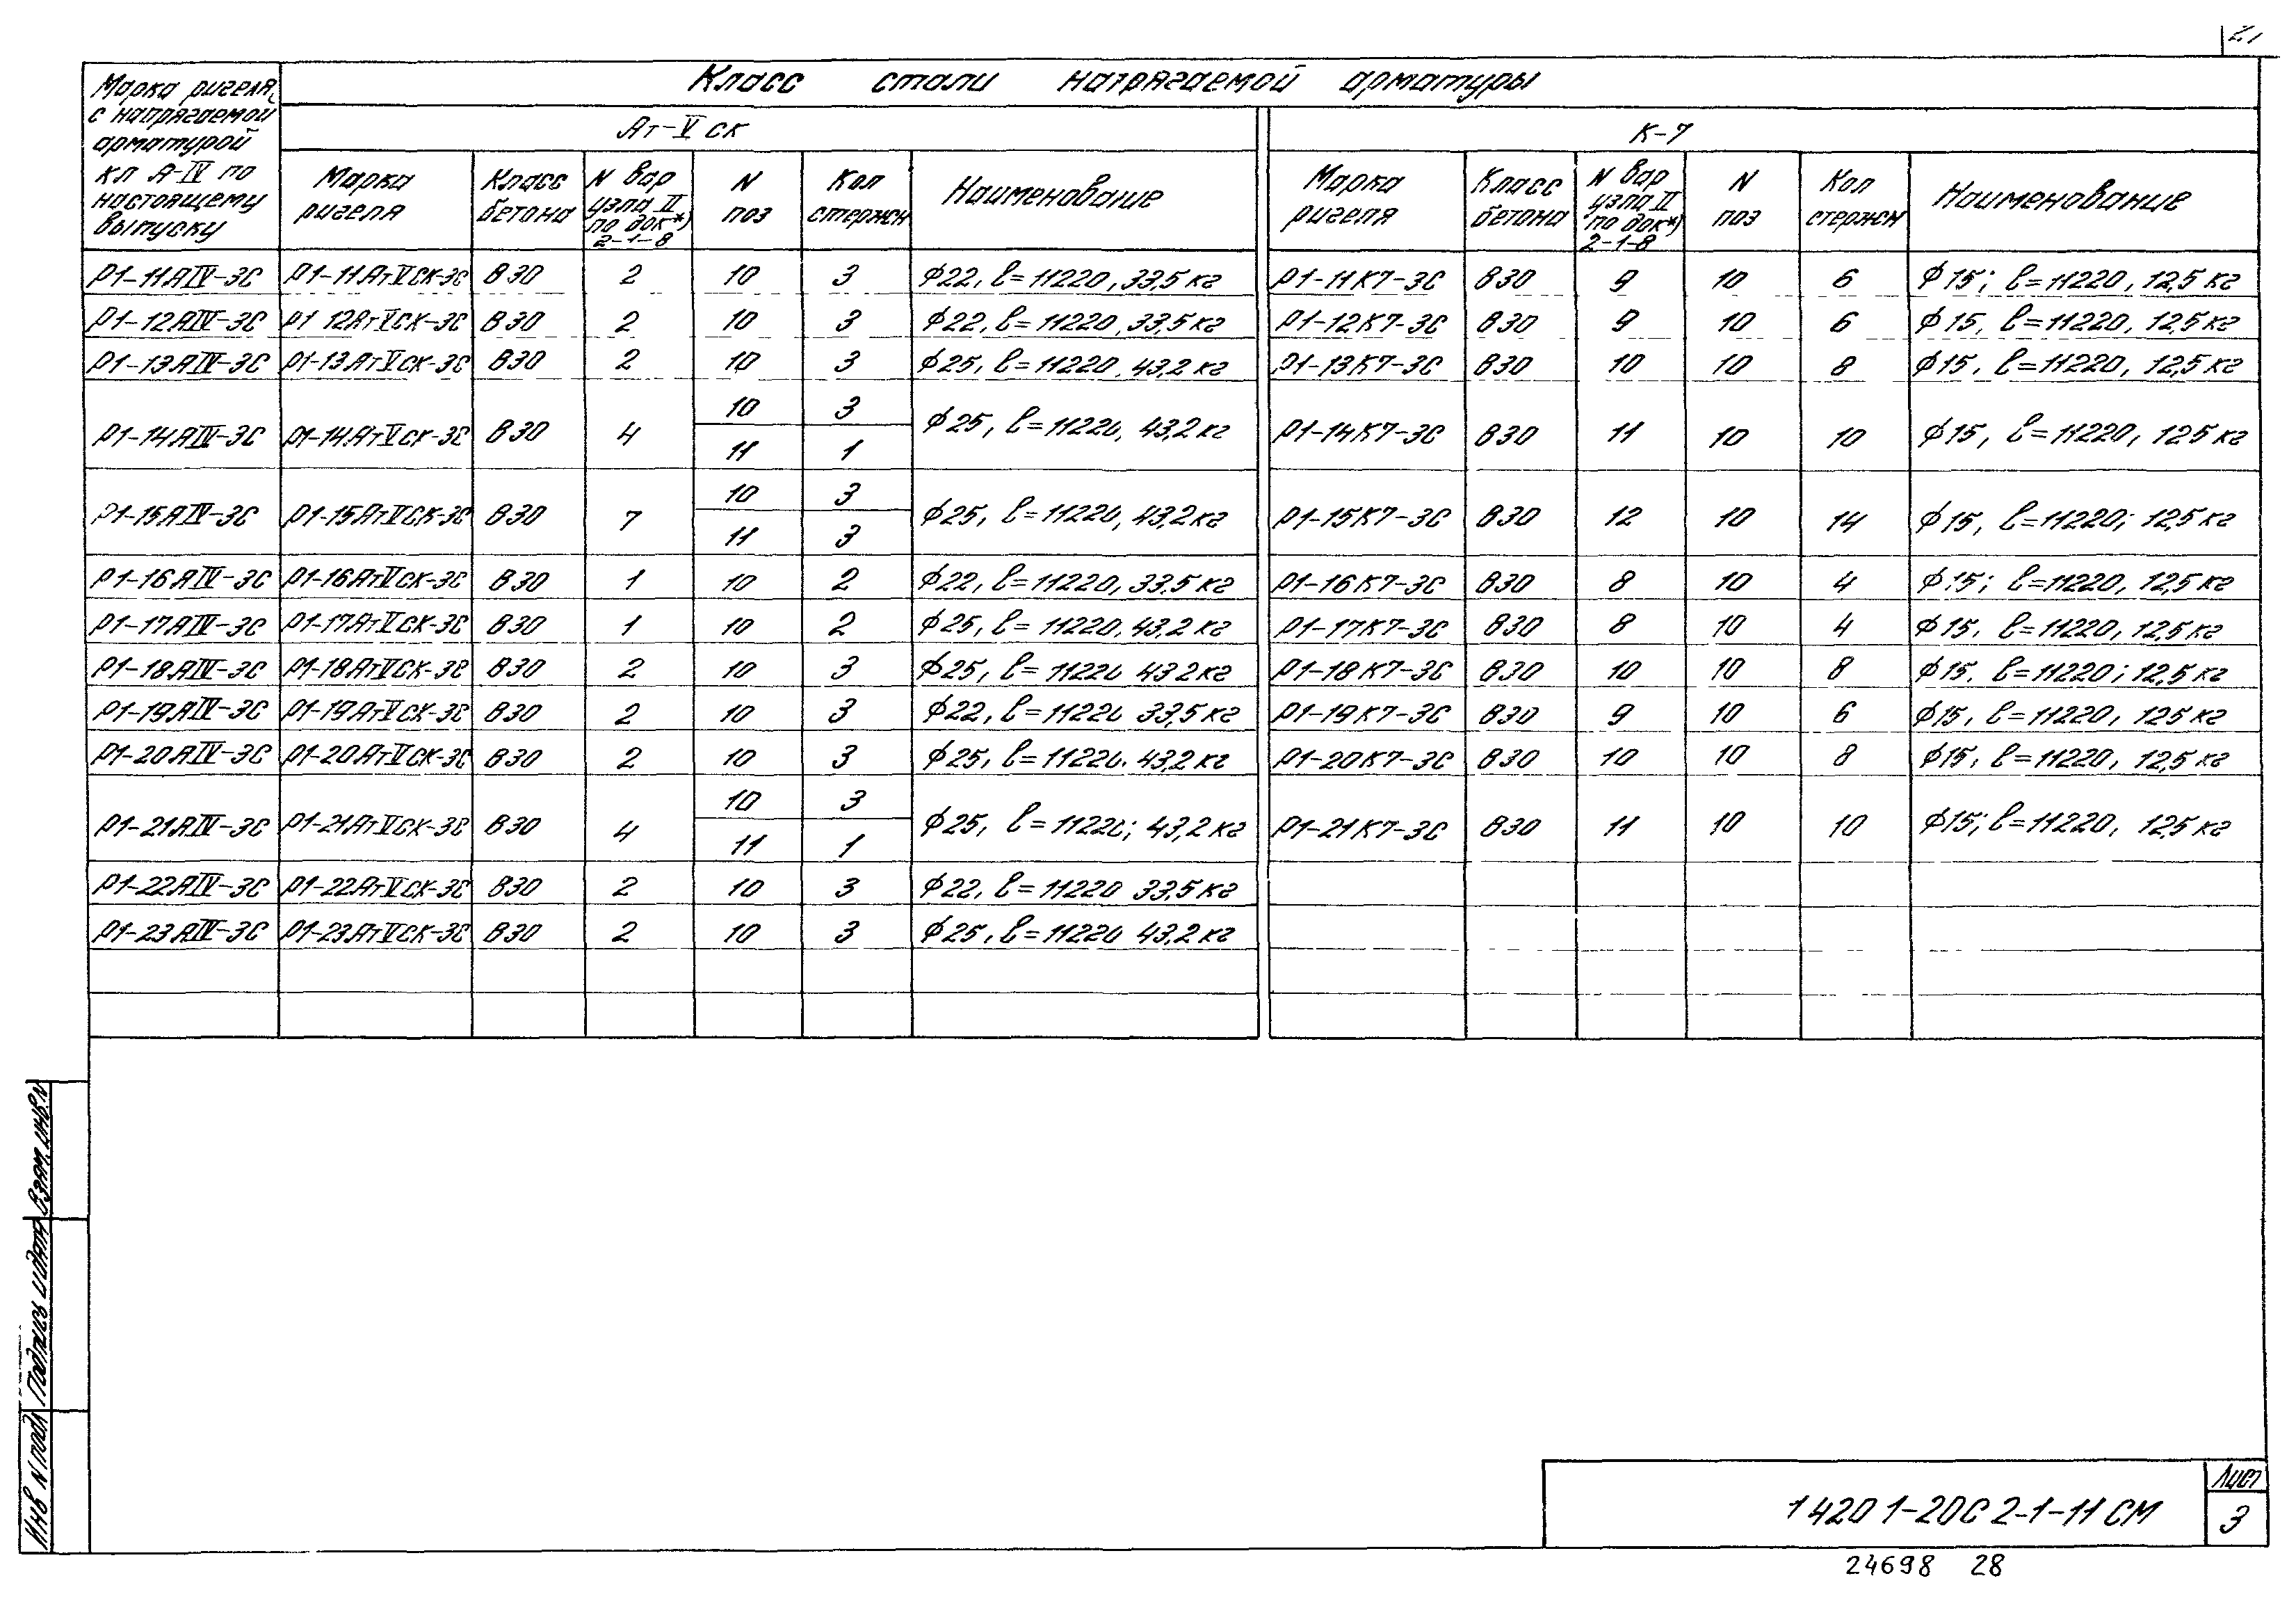 Класс стали напрягаемой арматуры
Марка ригеля с напрягаемой арматурой кл А-IV по настоящему выпуску
Ат-V ск
К-7
Марка ригеля
Класс бетона
N вар узла II по док*) 2-1-8
N поз
Кол стержн
Наименование
Марка ригеля
Класс бетона
N вар узла II по док*) 2-1-8
N поз
Кол стержн
Наименование
Р1-11АIV-3С Р1-11АтVСК-3С В30 2 10 3 ф22, l=11220, 33,5 кг Р1-11К7-3С В30 9 10 6 ф15; l=11220, 12,5 кг
Р1-12АIV-3С Р1 12АтVСК-3С В30 2 10 3 ф22, l=11220, 33,5 кг Р1-12К7-3С В30 9 10 6 ф15, l=11220, 12,5 кг
Р1-13АIV-3С Р1-13АтVСК-3С В30 2 10 3 ф25, l=11220, 43,2 кг Р1-13К7-3С В30 10 10 8 ф15, l=11220, 12,5 кг
Р1-14АIV-3С Р1-14АтVСК-3С В30 4 10 3 ф25, l=11220, 43,2 кг Р1-14К7-3С В30 11 10 10 ф15, l=11220, 125 кг
11 1
Р1-15АIV-3С Р1-15АтVСК-3С В30 7 10 3 ф25, l=11220, 43,2 кг Р1-15К7-3С В30 12 10 14 ф15, l=11220; 12,5 кг
11 3
Р1-16АIV-3С Р1-16АтVСК-3С В30 1 10 2 ф22, l=11220, 33,5 кг Р1-16К7-3С В30 8 10 4 ф15; l=11220, 12,5 кг
Р1-17АIV-3С Р1-17АтVСК-3С В30 1 10 2 ф25, l=11220, 43,2 кг Р1-17К7-3С В30 8 10 4 ф15, l=11220, 12,5 кг
Р1-18АIV-3С Р1-18АтVСК-3С В30 2 10 3 ф25, l=11220 43,2 кг Р1-18К7-3С В30 10 10 8 ф15, l=11220; 12,5 кг
Р1-19АIV-3С Р1-19АтVСК-3С В30 2 10 3 ф22, l=11220 33,5 кг Р1-19К7-3С В30 9 10 6 ф15, l=11220, 125 кг
Р1-20АIV-3С Р1-20АтVСК-3С В30 2 10 3 ф25, l=11220, 43,2 кг Р1-20К7-3С В30 10 10 8 ф15, l=11220, 12,5 кг
Р1-21АIV-3С Р1-21АтVСК-3С В30 4 10 3 ф25, l=11220; 43,2 кг Р1-21К7-3С В30 11 10 10 ф15; l=11220, 12,5 кг
11 1
Р1-22АIV-3С Р1-22АтVСК-3С В30 2 10 3 ф22, l=11220 33,5 кг
Р1-23АIV-3С Р1-23АтVСК-3С В30 2 10 3 ф25, l=11220 43,2 кг
Инв N подл Подпись и дата Взам. инв. N
1 420 1-20С 2-1-11 СМ
Лист
3
24698 28